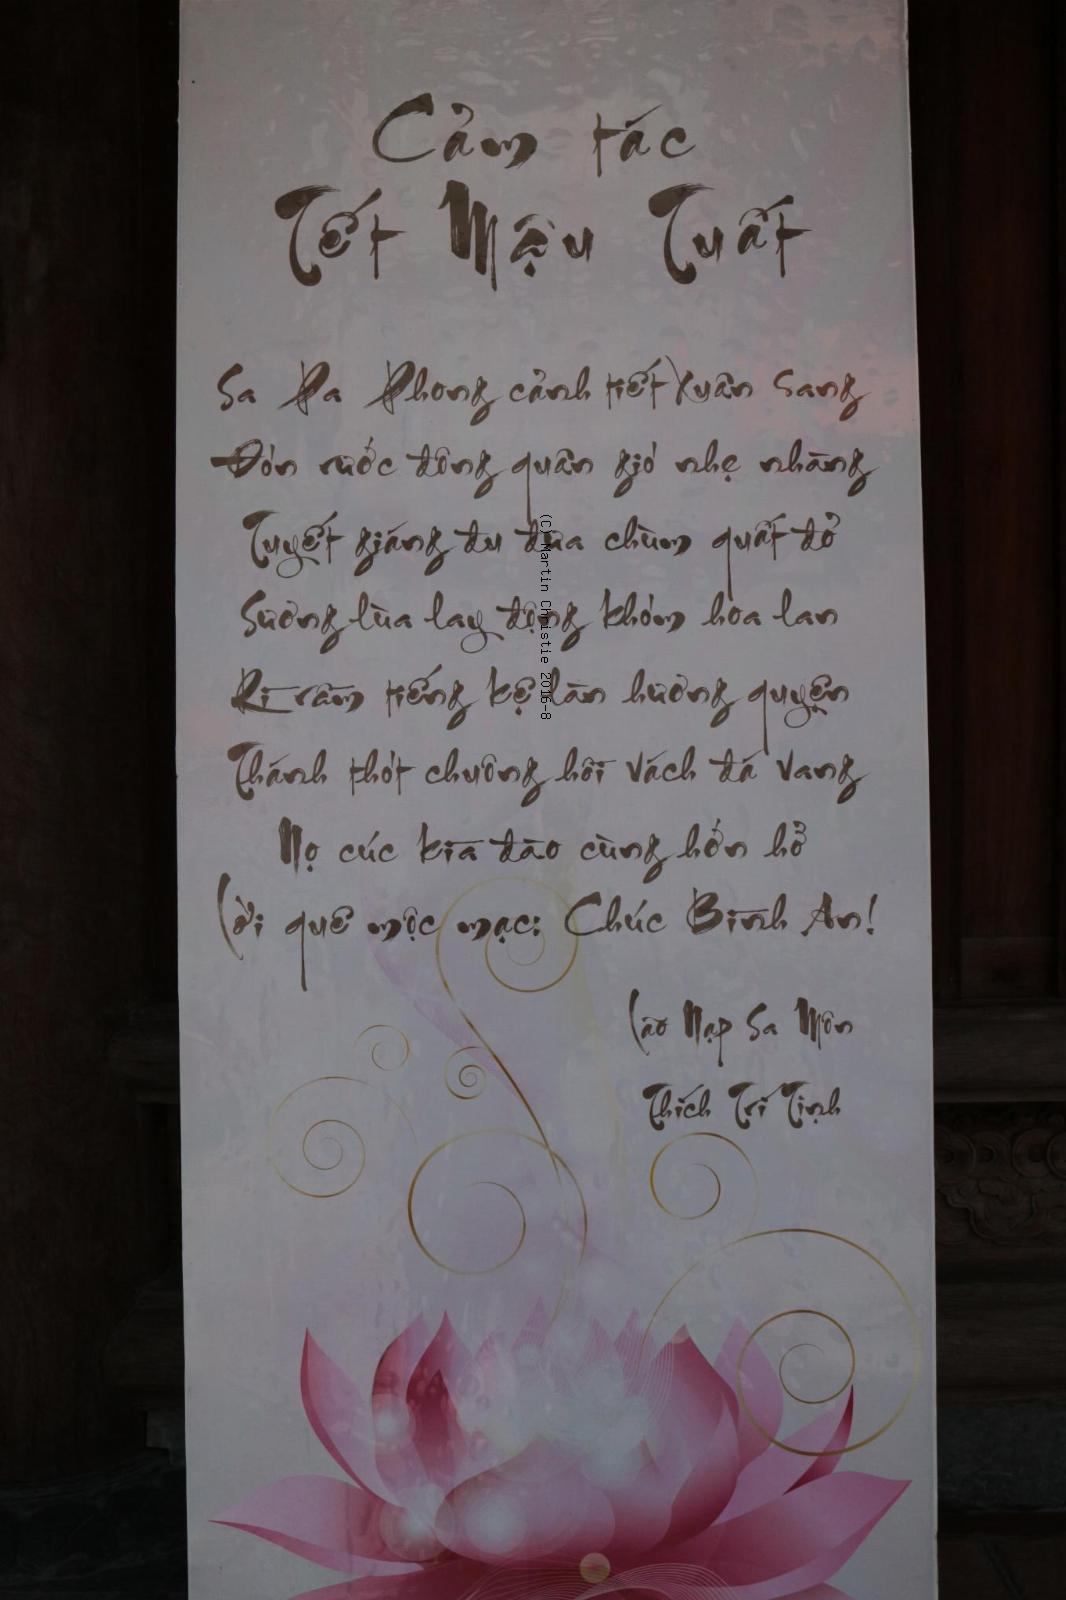 Cảm tác
Tết Mậu Tuất
Sa Pa Phong cảnh tiết Xuân sang
Đón rước đông quân gió nhẹ nhàng
Tuyết giáng đu đưa chùm quất đỏ
Sương lùa lay động khóm hoa lan
Rì rầm tiếng kệ làn hương quyện
Thánh thót chuông hồi vách đá vang
Nọ cúc kìa đào cùng hớn hở
Lời quê mộc mạc: Chúc Bình An!
Lão Nạp Sa Môn
Thích Trí Tịnh
(C) Martin Christie 2016-8